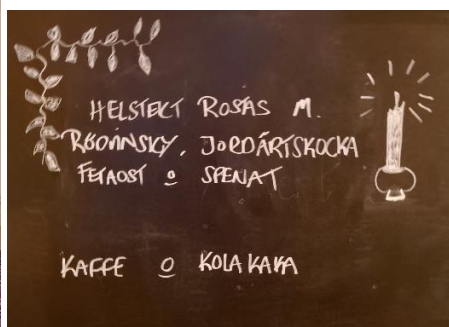 HELSTEKT ROSÁS M.
RÖDÁNSKY, JORDÁRTSKOCKA
FETAOST o SPENAT
KAFFE o KOLAKAKA